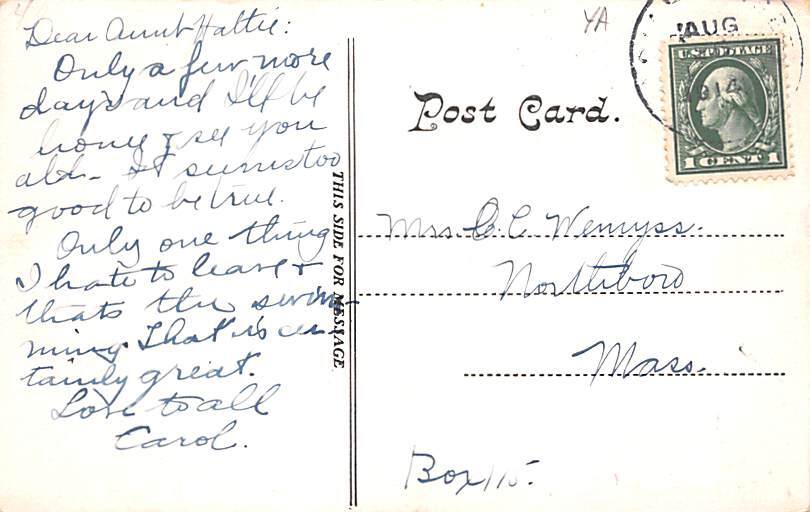 Dear Aunt Hattie:
Only a few more
days and I'll be
home & see you
all - It seems too
good to be true.
Only one thing
I hate to leave &
thats the swim-
ming. That is cer-
tainly great.
Love to all
Carol.
THIS SIDE FOR MESSAGE
YA
Post Card.
AUG
914
U.S. POSTAGE
1 CENT 1
Mrs. C. C. Wemyss.
Northboro
Mass.
Box 115.